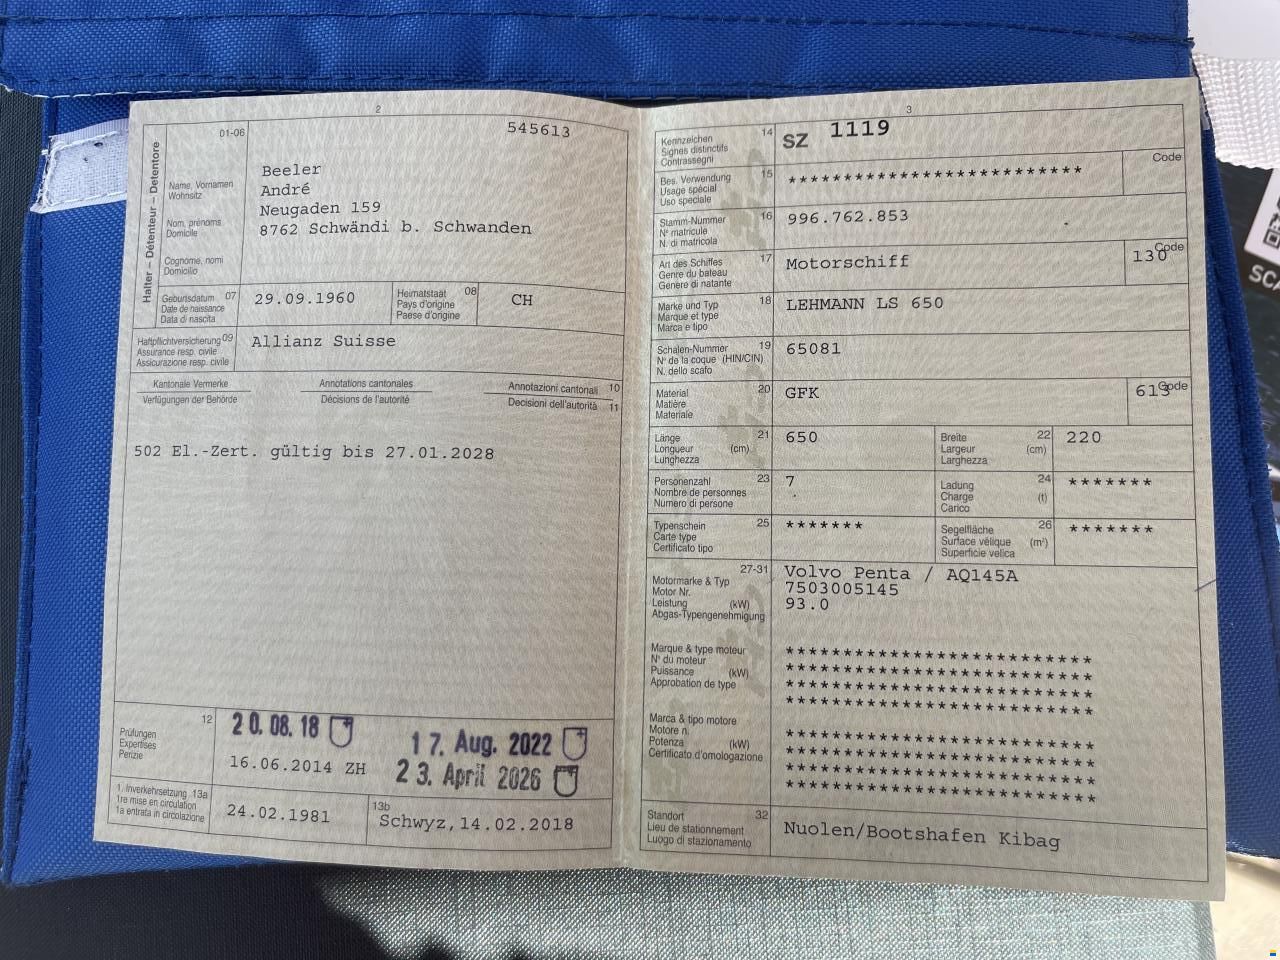 2
01-06
545613
Halter – Détenteur – Detentore
Name, Vornamen
Wohnsitz
Nom, prénoms
Domicile
Cognome, nomi
Domicilio
Beeler
André
Neugaden 159
8762 Schwändi b. Schwanden
Geburtsdatum 07
Date de naissance
Data di nascita
29.09.1960
Heimatstaat 08
Pays d'origine
Paese d'origine
CH
Haftpflichtversicherung 09
Assurance resp. civile
Assicurazione resp. civile
Allianz Suisse
Kantonale Vermerke Annotations cantonales Annotazioni cantonali 10
Verfügungen der Behörde Décisions de l'autorité Decisioni dell'autorità 11
502 El.-Zert. gültig bis 27.01.2028
12
Prüfungen
Expertises
Perizie
20.08.18
17. Aug. 2022
16.06.2014 ZH
23. April 2026
1. Inverkehrsetzung 13a
1re mise en circulation
1a entrata in circolazione
24.02.1981
13b
Schwyz,14.02.2018
3
Kennzeichen 14
Signes distinctifs
Contrassegni
SZ 1119
Bes. Verwendung 15
Usage spécial
Uso speciale
*************************
Code
Stamm-Nummer 16
N° matricule
N. di matricola
996.762.853
Art des Schiffes 17
Genre du bateau
Genere di natante
Motorschiff
Code
130
Marke und Typ 18
Marque et type
Marca e tipo
LEHMANN LS 650
Schalen-Nummer 19
N° de la coque (HIN/CIN)
N. dello scafo
65081
Material 20
Matière
Materiale
GFK
Code
613
Länge 21
Longueur (cm)
Lunghezza
650
Breite 22
Largeur (cm)
Larghezza
220
Personenzahl 23
Nombre de personnes
Numero di persone
7
Ladung 24
Charge (t)
Carico
*******
Typenschein 25
Carte type
Certificato tipo
*******
Segelfläche 26
Surface vélique (m²)
Superficie velica
*******
27-31
Motormarke & Typ
Motor Nr.
Leistung (kW)
Abgas-Typengenehmigung
Volvo Penta / AQ145A
7503005145
93.0
Marque & type moteur
N° du moteur
Puissance (kW)
Approbation de type
**************************
**************************
**************************
**************************
Marca & tipo motore
Motore n.
Potenza (kW)
Certificato d'omologazione
**************************
**************************
**************************
**************************
Standort 32
Lieu de stationnement
Luogo di stazionamento
Nuolen/Bootshafen Kibag